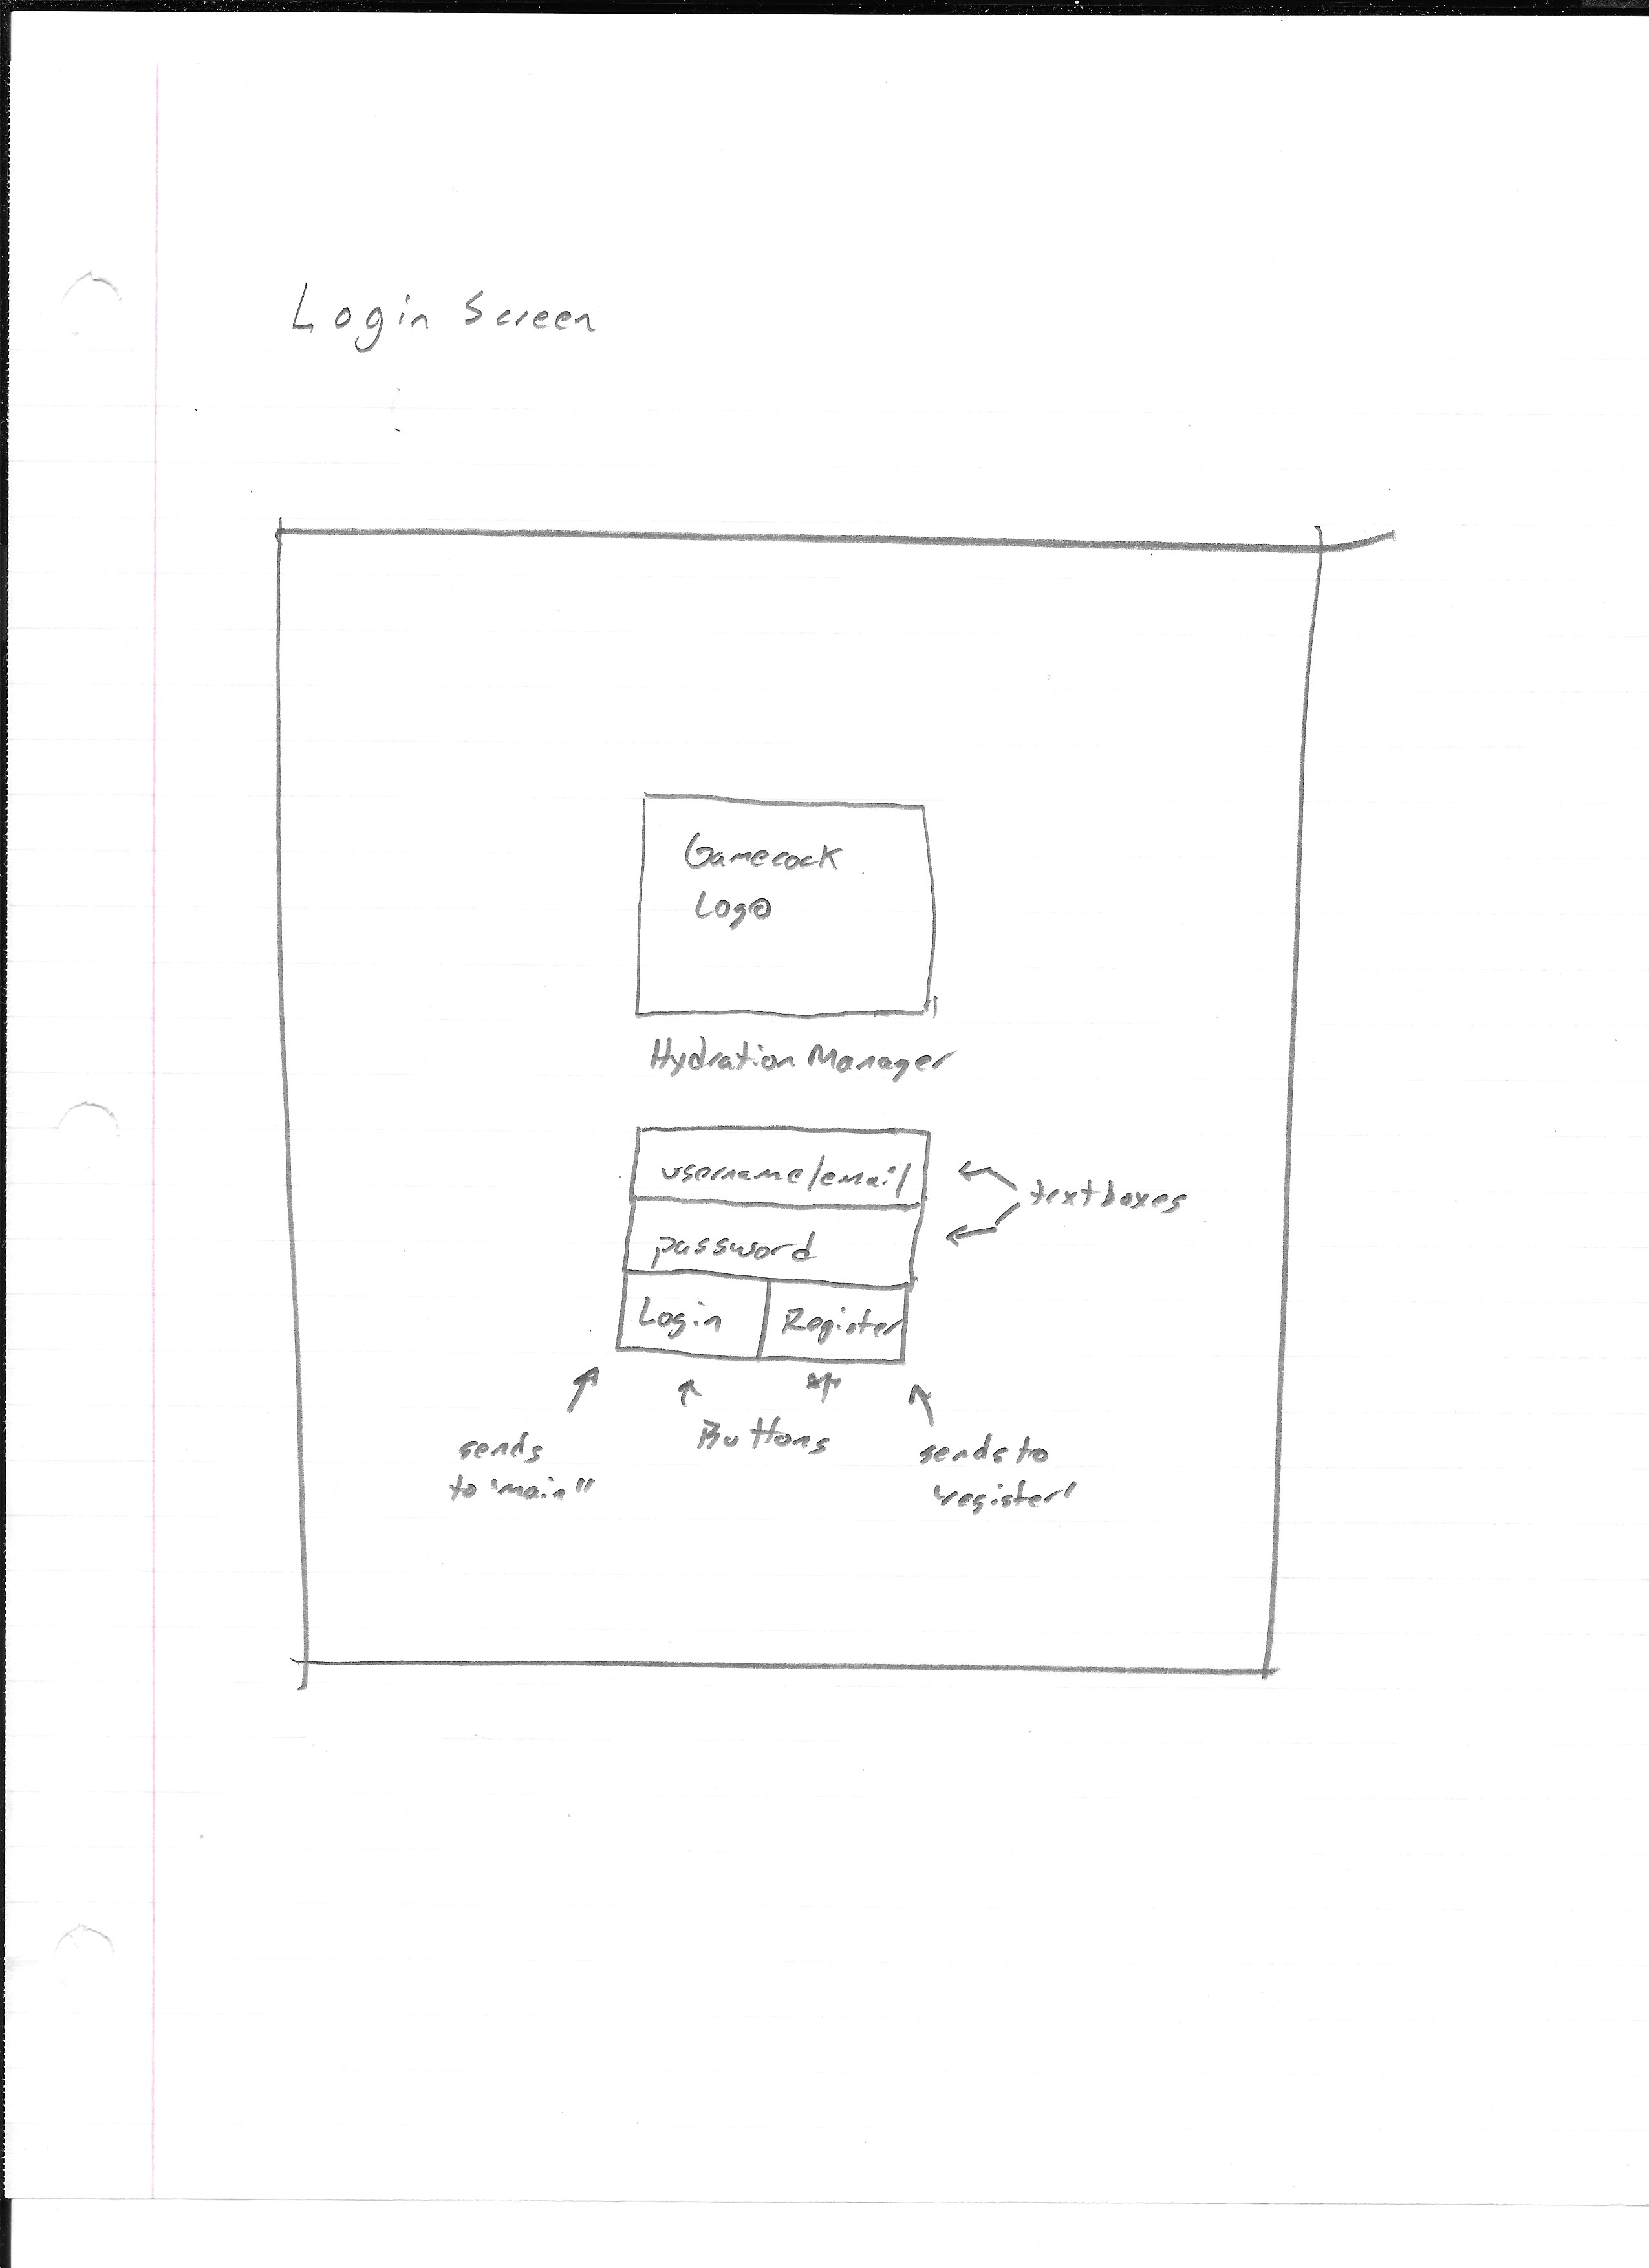 Login Screen
Gamecock
Logo
Hydration Manager
username/email
textboxes
password
Login
Register
Buttons
sends
to "main"
sends to
"register"